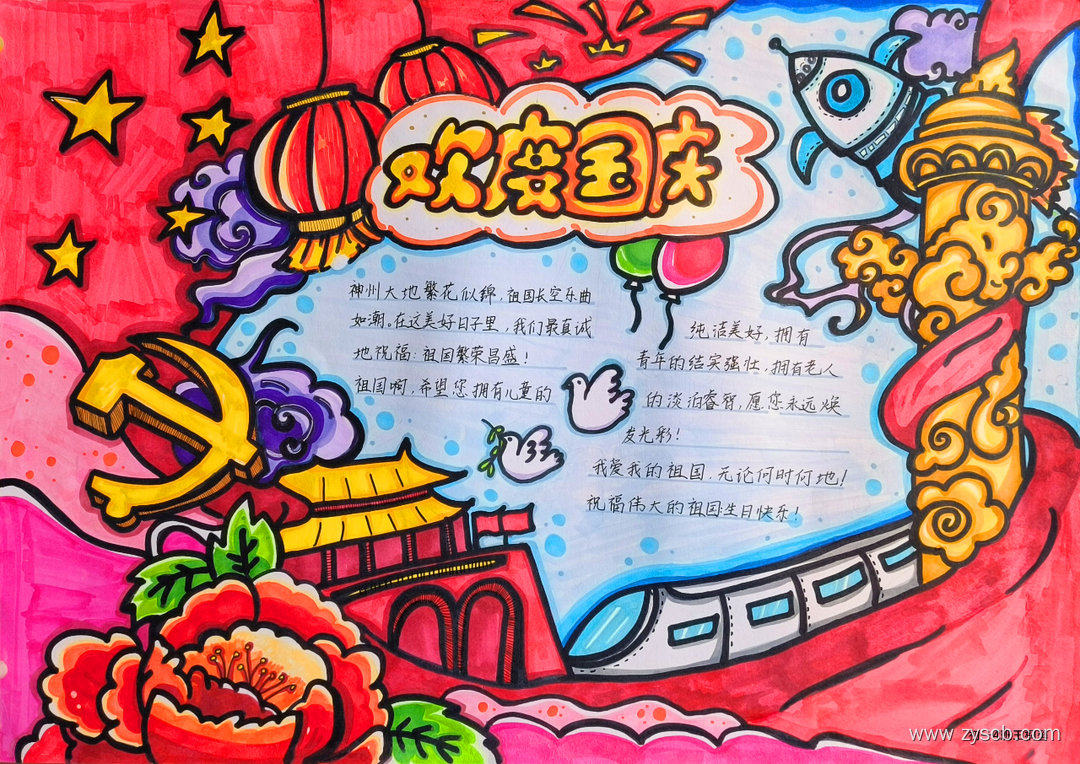 欢度国庆
神州大地繁花似锦，祖国长空乐曲
如潮。在这美好日子里，我们最真诚
地祝福：祖国繁荣昌盛！
祖国啊，希望您拥有儿童的
纯洁美好，拥有
青年的结实强壮，拥有老人
的淡泊睿智，愿您永远焕
发光彩！
我爱我的祖国，无论何时何地！
祝福伟大的祖国生日快乐！
www.zyscb.com